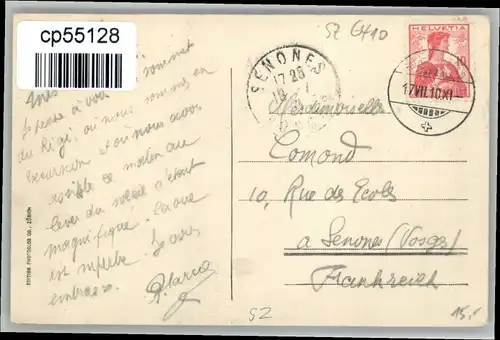 cp55128
SZ 6410
HELVETIA
SENONES
17 25
17.VII.10.XI
sommet
Je pense à vous
du Rigi, où nous sommes en
excursion et où nous avons
assisté ce matin au
lever du soleil c'était
magnifique. La vue
est superbe. Je vous
embrasse.
Mademoiselle
Comond
10, Rue des Ecoles
à Senones (Vosges)
Frankreich
EDITION PHOTOGLOB CO., ZÜRICH
SZ
15.-